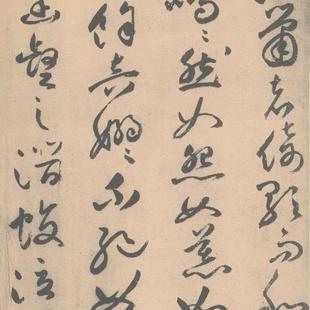 簫者倚歌而和
嗚〻然如怨如慕如
餘音嫋〻不絕如
幽壑之潛蛟泣